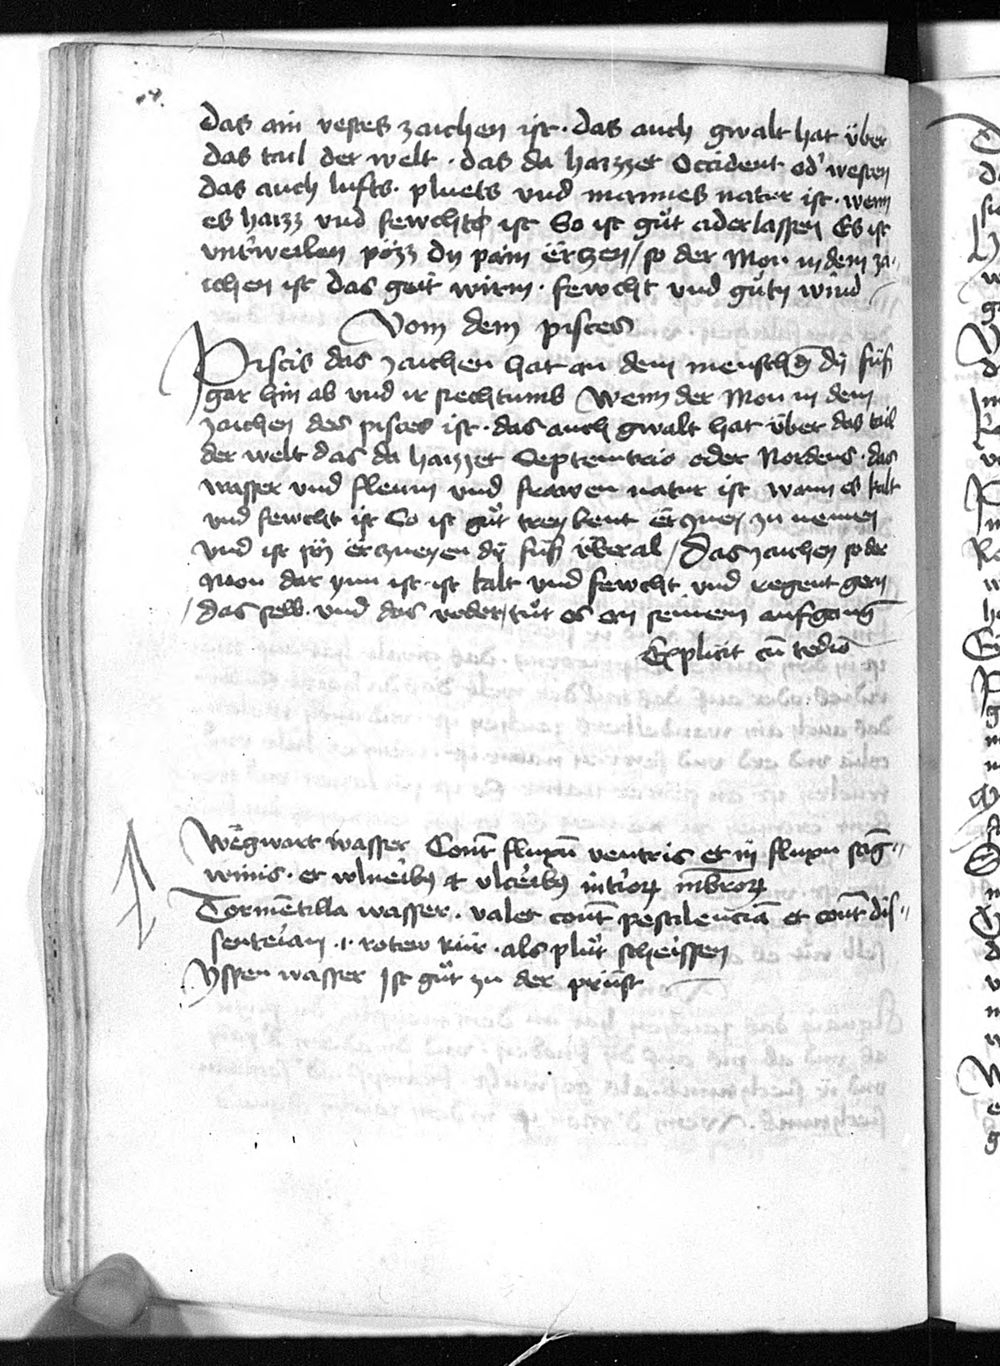 das ain vestes zaichen ist · das auch gwalt hat über
das tail der welt · das da haizzet Occident od' westen
das auch lufts · pluets vnd mannes natur ist · wenn
es haizz vnd fewcht ist So ist gůt aderlassen Es ist
vnt'weilen pözz dy pain ërtzen / so der Mon in dem za-
ichen ist das geit wirm · fewcht vnd gůty wind
Vom dem pisces
Piscis das zaichen hat an dem mensch̄ dÿ füß
gar hin ab vnd ir siechtumb Wenn der Mon in dem
zaichen des pisces ist · das auch gwalt hat über das tail
der welt das da haizzet Septemtrio oder Nordens · das
wasser vnd fleum vnd frawen natur ist wann es kalt
vnd fewcht ist So ist gůt trey bent ërzney zu nemen
vnd ist pöz ërzneyen dÿ füß überal / Das zaichen so der
Mon dar ynn ist · ist kalt vnd fewcht vnd regent gern
/ das selb · vnd das weder / tůt es an seinem aufgang
Explicit cū tedio
Wëgwart wasser Cont̄ fluxū ventris et in fluxu sāg-
winis · et vlnerib9 et vlcerib9 int'ioꝝ mēbroꝝ
Tormētilla wasser · valet cont̄ pestilenciā et cont̄ dis-
senteriam · i · roten rür · als plůt scheissen
Yspen wasser Ist gůt zu der prüst